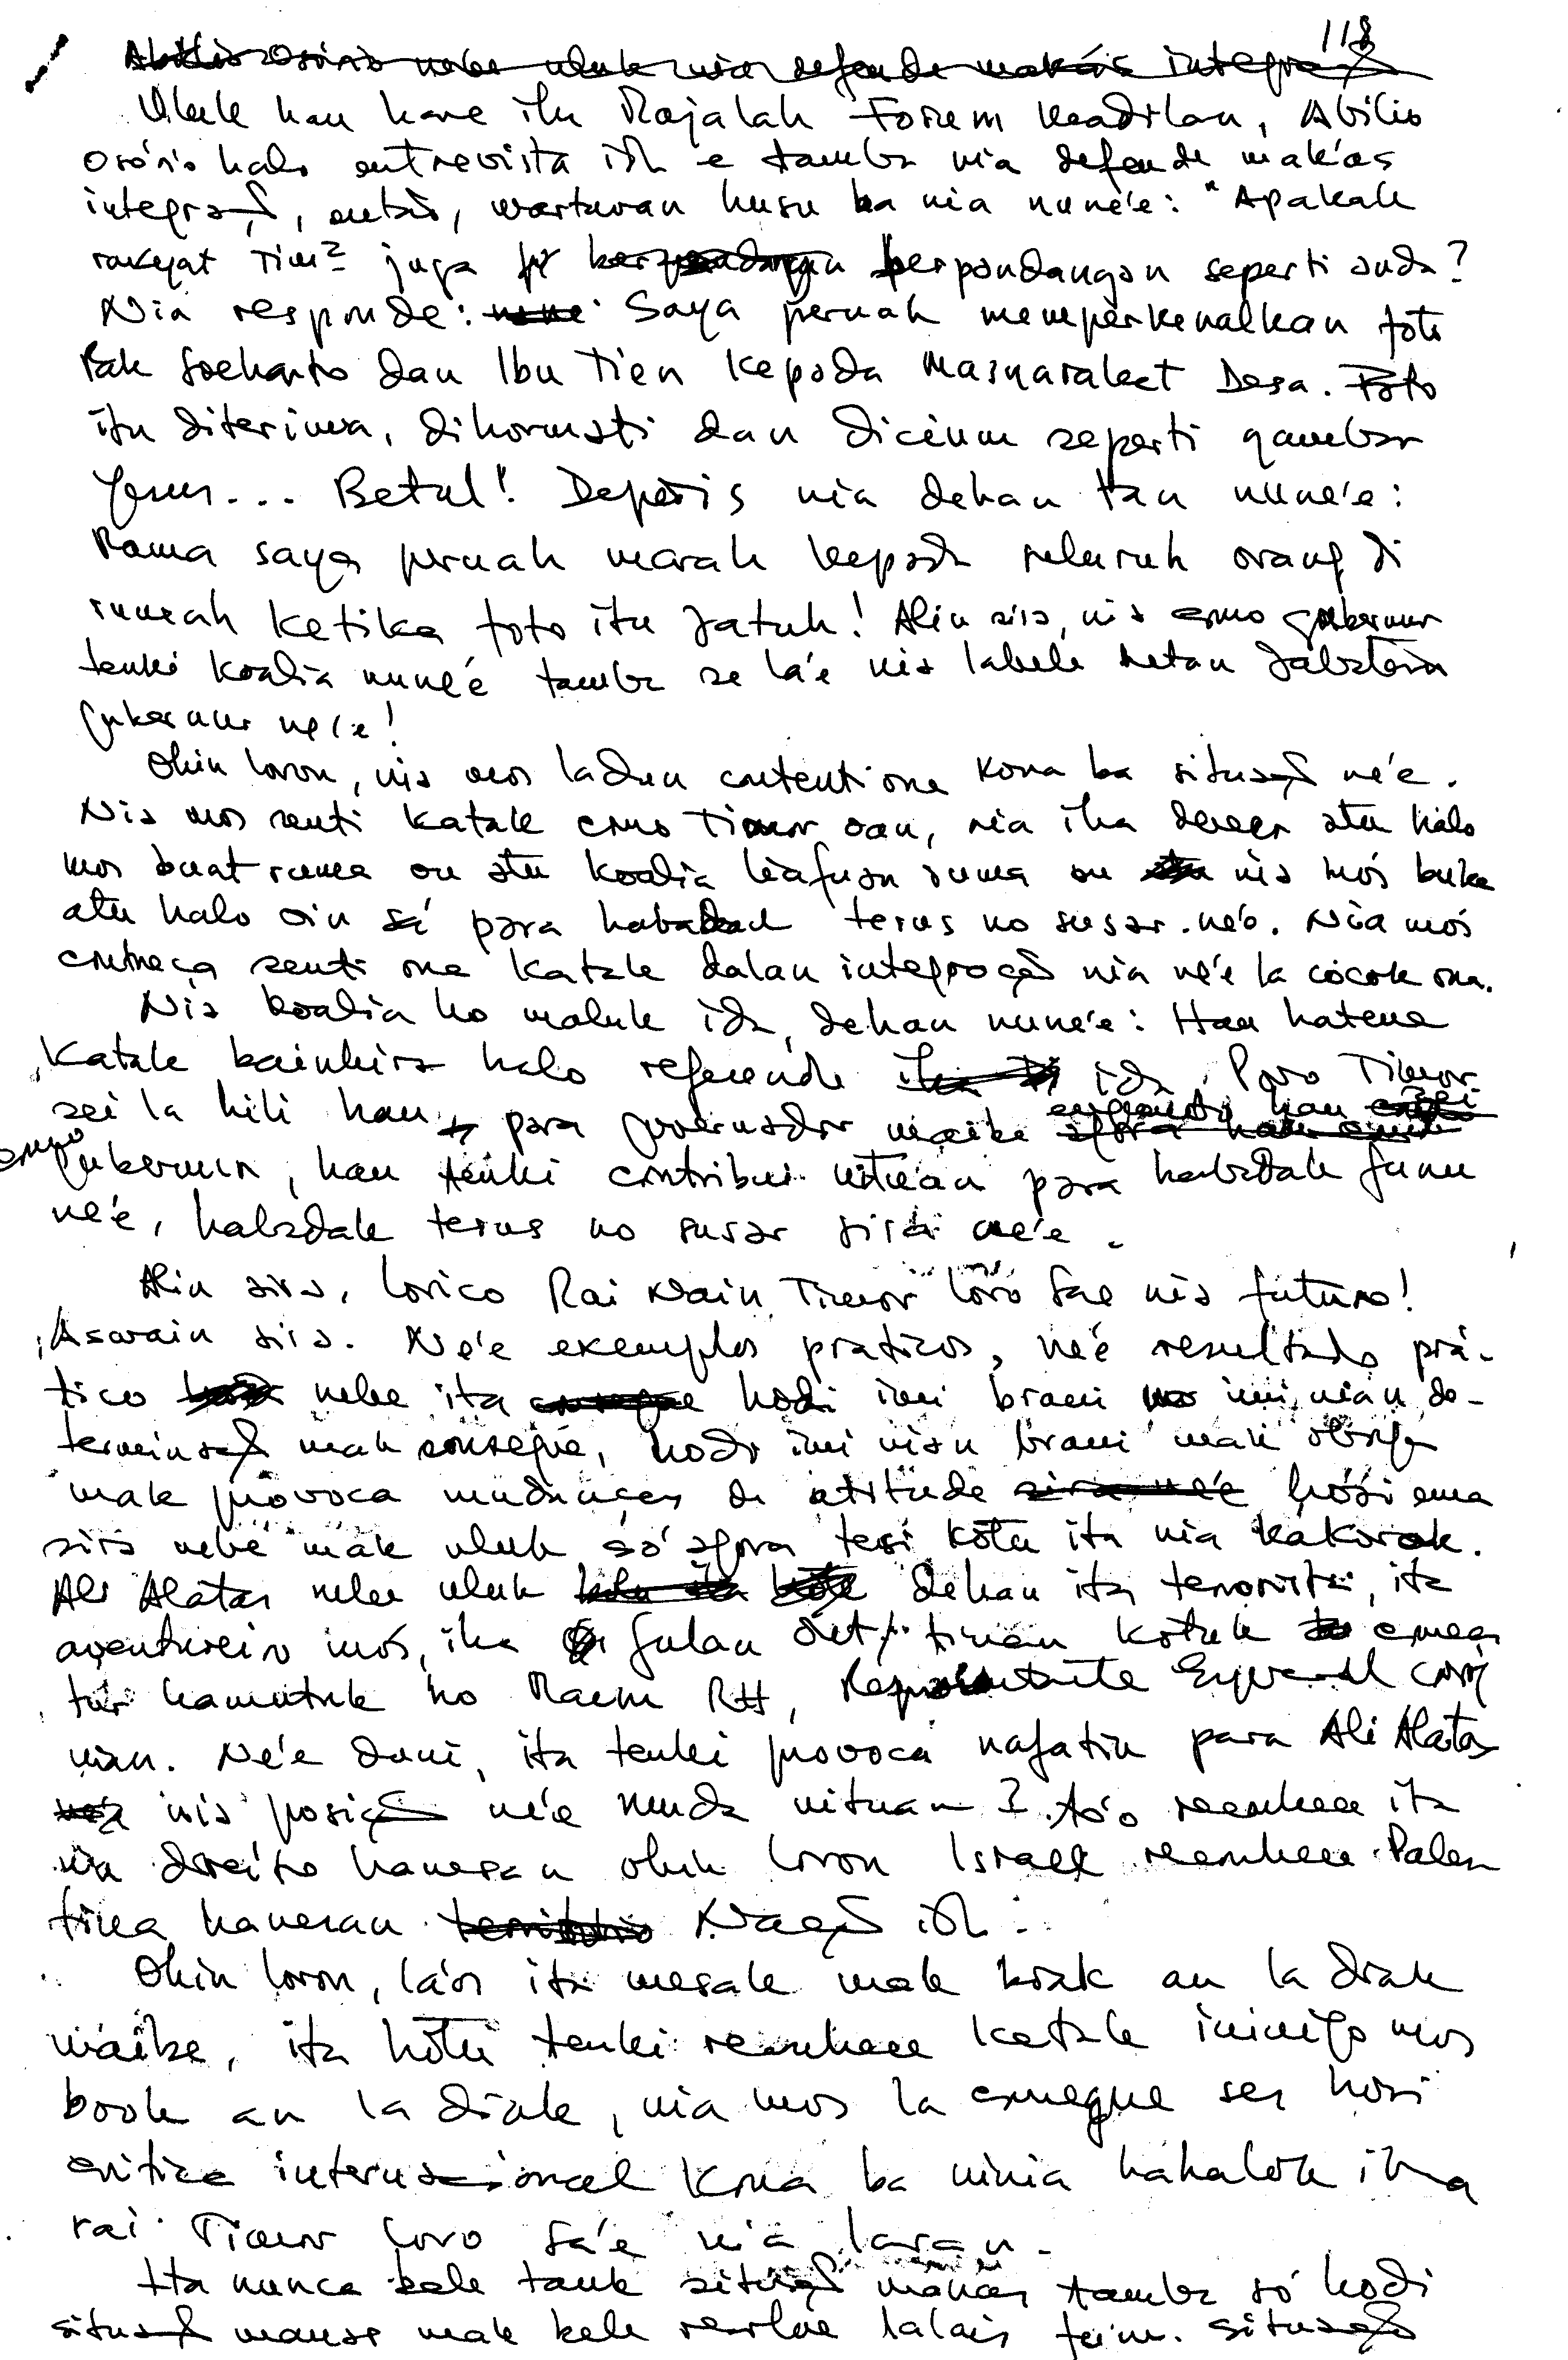 118
Abilio Osório nebe uluk nia defende makás integração
Uluk hau hare iha Majalah Forum Keadilan, Abilio
Osório halo entrevista ida e tamba nia defende makás
integração, entáo, wartawan husu ba nia nune'e: "Apakah
rakyat Tim² juga berpandangan seperti anda?
Nia responde: Saya pernah memperkenalkan foto
Pak Soeharto dan Ibu Tien kepada Masyarakat Desa. Foto
itu diterima, dihormati dan dicium seperti gambar
Yesus... Betul! Depois nia dehan tan nune'e:
Mama saya pernah marah kepada seluruh orang di
rumah ketika foto itu jatuh! Alin sira, nia como gubernur
tenki koalia nune'e tamba se la'e nia labele hetan jabatan
gubernur ne'e!
Ohin loron, nia mos ladun contenti ona kona ba situação ne'e.
Nia mos senti katak como Timor oan, nia iha dever atu halo
mos buat ruma ou atu koalia liafuan ruma ou nia mós buka
atu halo oin sá para habadak terus no susar ne'e. Nia mós
começa senti ona katak dalan integração nia ne'e la cócok ona.
Nia koalia ho maluk ida, dehan nune'e: Hau hatene
katak bainhira halo referendu ida, Povo Timor
sei la hili hau para governador maibe enquanto hau sei
como gubernur, hau tenki contribui nituan para habadak funu
ne'e, habadak terus no susar sira ne'e.
Alin sira, lorico Rai Nain Timor Loro Sae nia futuro!
Aswain sira. Ne'e exemplos praticos, ne'e resultado prá-
tico nebe ita hodi imi brani imi nian de-
terminação mak consegue, hodi imi nian brani mak obriga
mak provoca mudanças de atitude hósi ema
sira nebé mak uluk só agora tesi kotu ita nia kakorok.
Ali Alatas nebe uluk dehan ita terrorista, ita
aventureiro mós, iha fulan tinan kotuk começa
tur hamutuk ho Maem RH, Representante Especial CNRM
nian. Ne'e duni, ita tenki provoca nafatin para Ali Alatas
nia posição ne'e muda nituan? To'o reconhece ita
nia direito hanesan ohin loron Israel reconhece Pales-
tina hanesan Nação ida.
Ohin loron, la'os ita mesak mak book an la diak
maibe, ita hotu tenki reconhece katak inimigo mos
book an la diak, nia mos la consegue ses hosi
critica internacional kona ba ninia hahalok iha
rai Timor Loro Sa'e nia laran.
Ita nunca bele tauk situação manas tamba só hodi
situação manas mak bele resolve lalais teim. situação